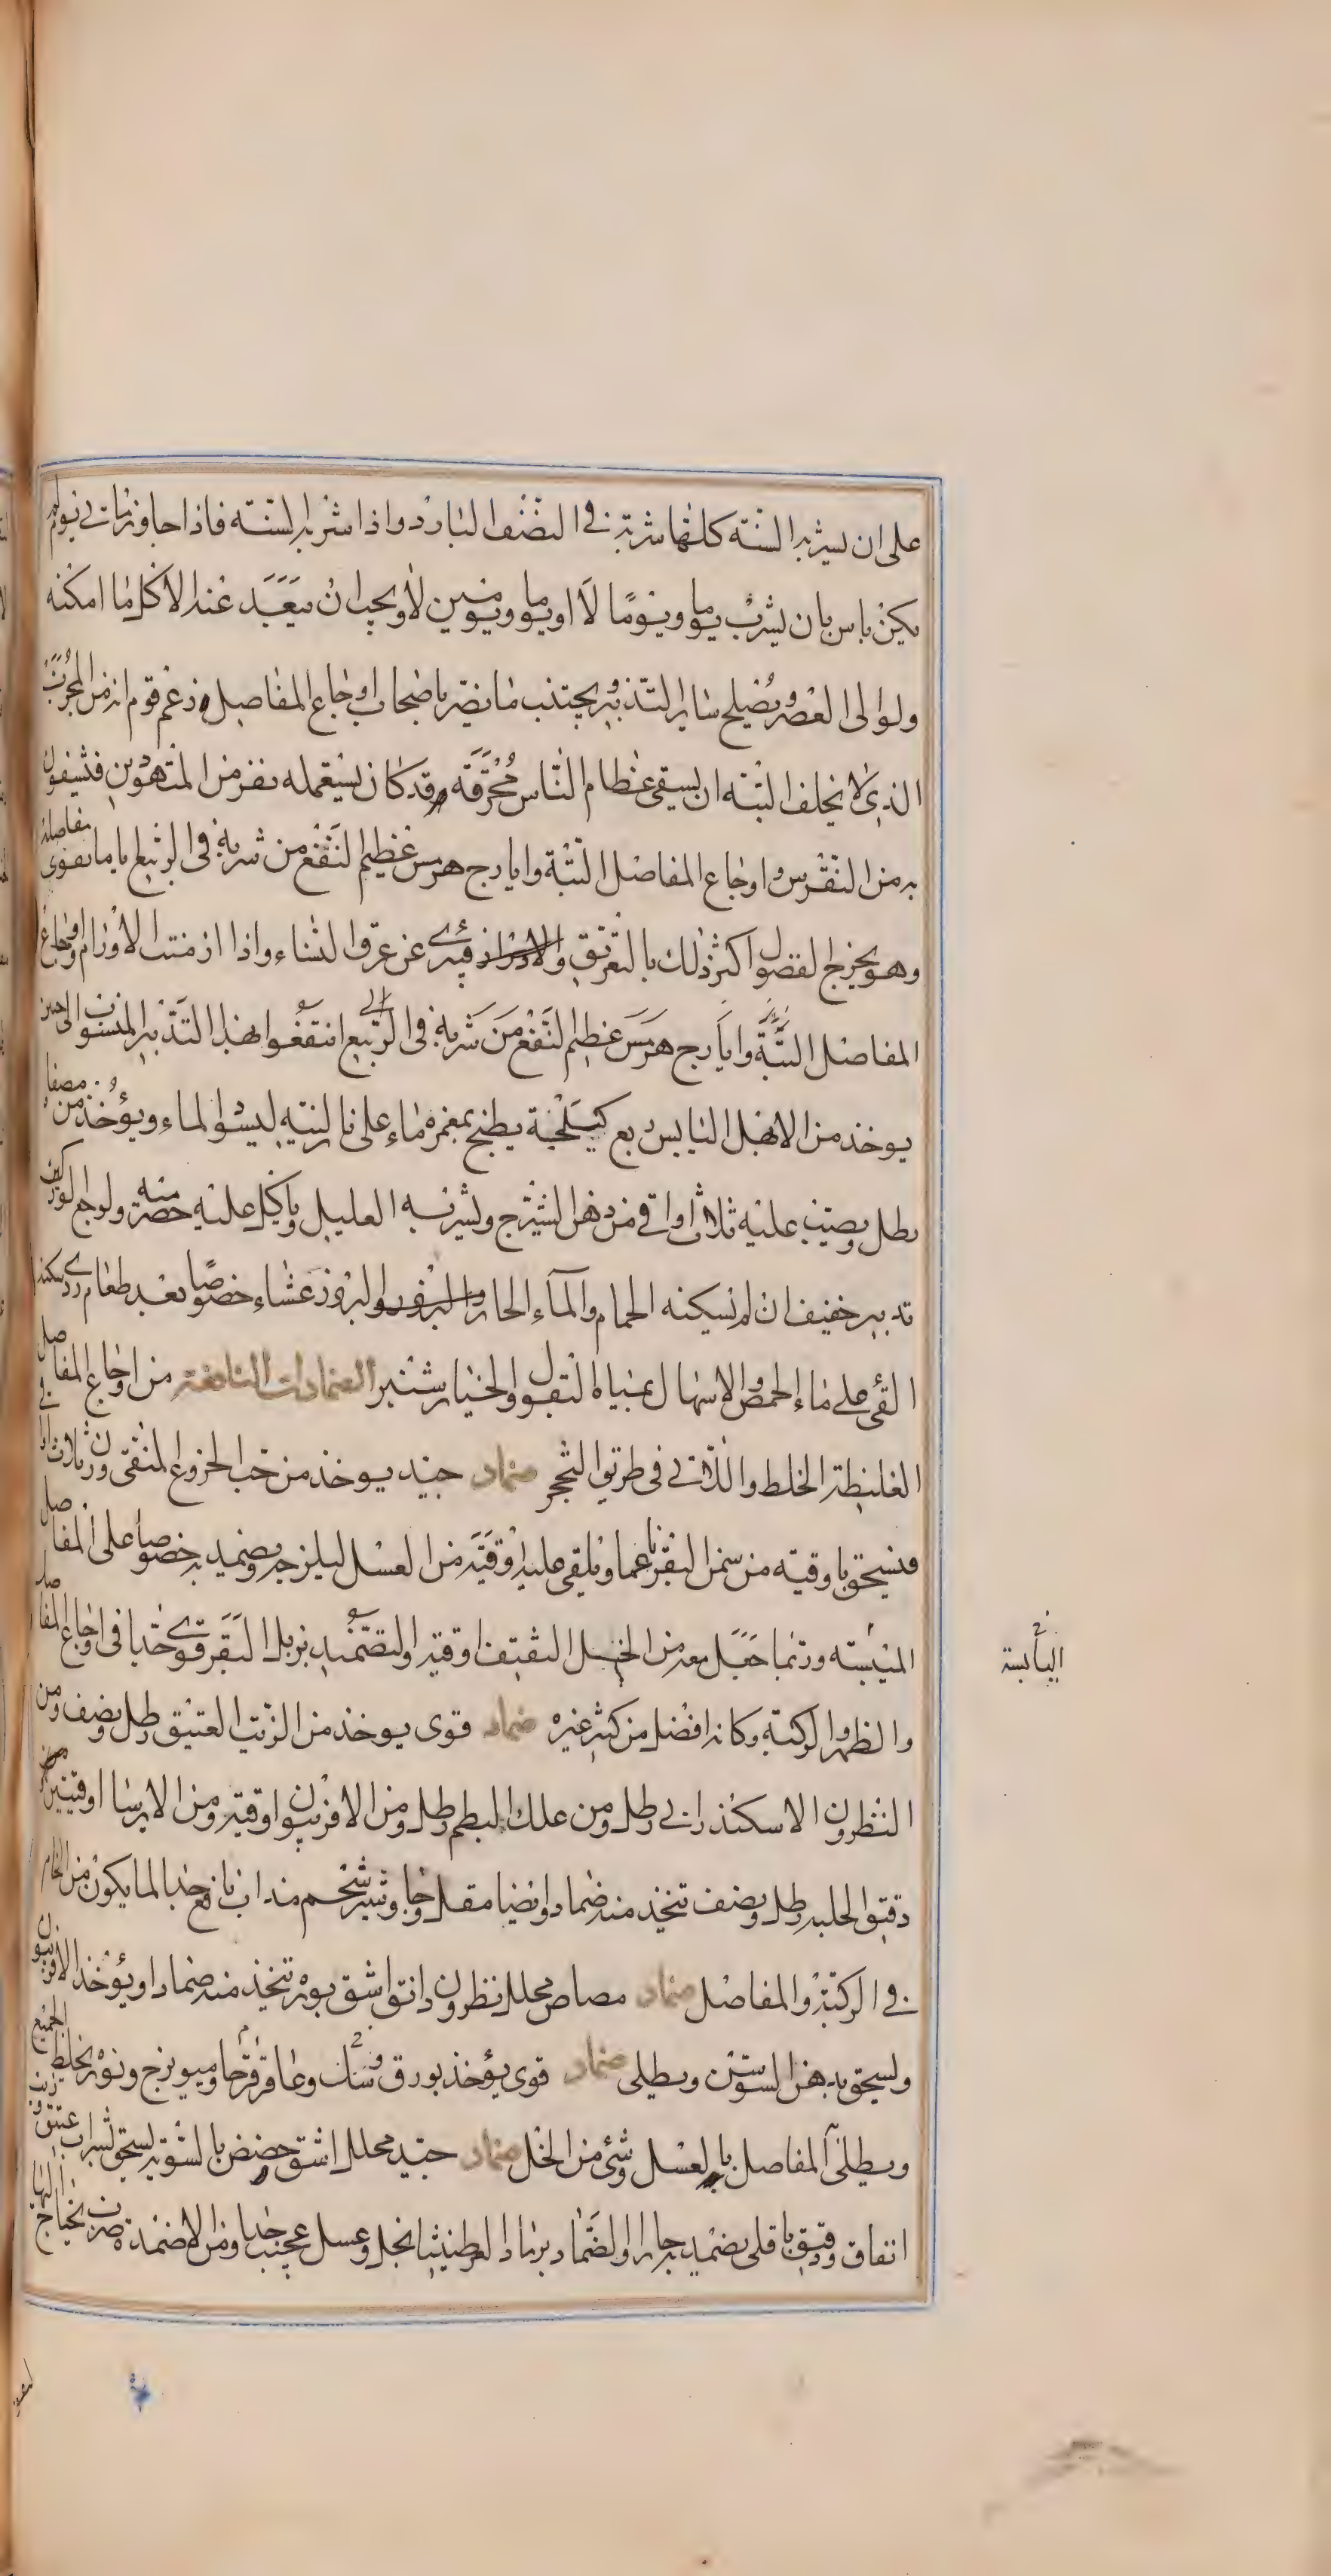 على ان يشربه السنة كلها شربة في النصف البارد واذا شربه السنة فاذا جاوز مات في يوم لم
يكن باس بان يشرب يوما ويوما لا او يوما ويومين لا ويجب ان يبعد عند الاكل ما امكنه
ولو الى العصر ويصلح ساير التدبير ويجتنب ما يضر باصحاب اوجاع المفاصل وزعم قوم ان من المجرب
الذي لا يخلف البتة ان يسقى عظام الناس محرقة وقد كان يستعمله نفر من المتهوين فيشفون
به من النقرس واوجاع المفاصل البتة وايارج هرمس عظيم النفع من شربه في الربيع اياما يقوى مفاصله
وهو يخرج الفضول اكثر ذلك بالتعريق والادرار فيبرئ عن عرق النساء واذا ازمنت الاورام واوجاع
المفاصل البتة وايارج هرمس عظيم النفع من شربه في الربيع انتفعوا بهذا التدبير المنسوب الى حنين
يوخذ من الابهل اليابس ربع كيلجة يطبخ بمغمره ماء على نار لينة ليسود الماء ويؤخذ من مصفاه
رطل ويصب عليه ثلاث اواقي من دهن الشيرج ويشربه العليل وياكل عليه حصرمية ولوجع الوركين
تدبير خفيف ان لم تسكنه الحمام والماء الحار والبزور عشاء خصوصا بعد طعام ردي سكنه
القئ على ماء الحمص والاسهال بمياه البقول والخيار شنبر الضمادات النافعة من اوجاع المفاصل
الغليظة الخلط واللاتي في طريق التحجر ضماد جيد يوخذ من حب الخروع المنقى وزن ثلاث اواقي
فيسحق باوقية من سمن البقر ناعما ويلقى عليه اوقية من العسل ليلزجه ويضمد به خصوصا على المفاصل
الميبسة وربما جعل معه من الخل الثقيف اوقية والتضميد بزبل البقر قوي جدا في اوجاع المفاصل
والظهر والركبة وكانه افضل من كثير غيره ضماد قوى يوخذ من الزيت العتيق رطل ونصف ومن
النطرون الاسكندراني رطل ومن علك البطم رطل ومن الافربيون اوقية ومن الايرسا اوقيتين ومن
دقيق الحلبة رطل ونصف تتخذ منه ضماد وايضا مقل وجاوشير شحم مذاب نافع جدا لما يكون من الخام
في الركبة والمفاصل ضماد مصاص محلل نطرون راتق اشق بوره تتخذ منه ضماد او يؤخذ الافربيون
ويسحق بدهن السوسن ويطلى ضماد قوى يؤخذ بورق وسك وعاقرقرحا وميويزج ونوره يخلط الجميع
ويطلى المفاصل بالعسل وشئ من الخل ضماد جيد محلل اشق حضض بالسوية يسحق بشراب عتيق وزيت
اتفاق ودقيق باقلى يضمد به حارا والضماد برماد القرطنيثا بخل وعسل عجيب جدا ومن الاضمدة ضرب يحتاج اليها
اليابسة